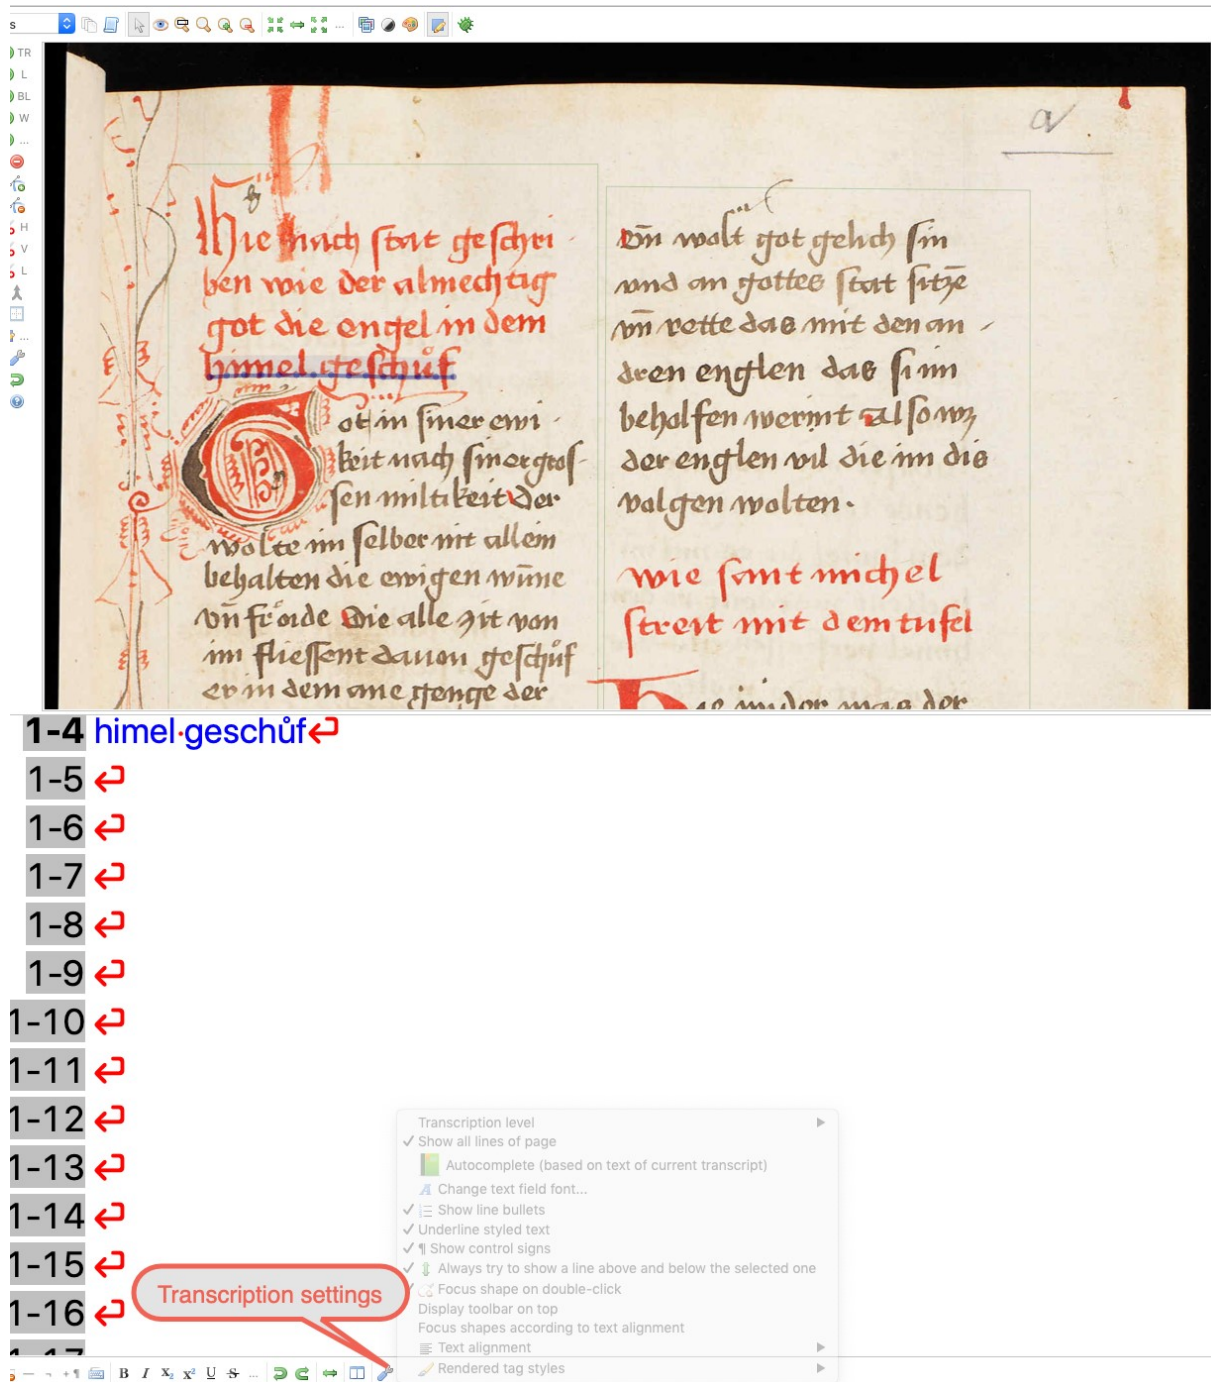 s
TR
L
BL
W
...
H
V
L
...
a
Hie nach stat geschri
ben wie der almechtig
got die engel in dem
himel.geschůf
Got in siner ewi
keit nach siner gros-
sen miltikeit Der
wolte im selber nit allein
behalten die ewigen wūne
vn̄ froͤide Die alle zit von
im fliessent dauon geschůf
er in dem ane genge der
vn̄ wolt got gelich sin
vnd an gottes stat sitzē
vn̄ rette das mit den an
dren englen das si im
beholfen werint also wz
der englen vil die im dis
volgen wolten.
wie sant michel
streit mit dem tufel
1-4 himel·geschůf↵
1-5 ↵
1-6 ↵
1-7 ↵
1-8 ↵
1-9 ↵
1-10 ↵
1-11 ↵
1-12 ↵
1-13 ↵
1-14 ↵
1-15 ↵
1-16 ↵
1-17
Transcription level
✓ Show all lines of page
Autocomplete (based on text of current transcript)
A Change text field font...
✓ Show line bullets
✓ Underline styled text
✓ ¶ Show control signs
✓ Always try to show a line above and below the selected one
✓ Focus shape on double-click
Display toolbar on top
Focus shapes according to text alignment
Text alignment
Rendered tag styles
Transcription settings
+¶ B I X₂ x² U S ...